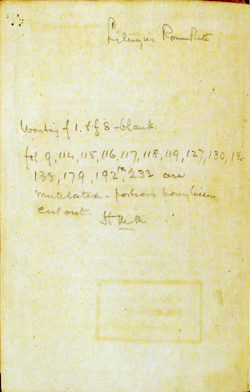 Wanting f. 1. & f 8 - blank.
fol 9, 114, 115, 116, 117, 118, 119, 127, 130, 
138, 179, 192, 232 are
mutilated - portions having been
cut out.